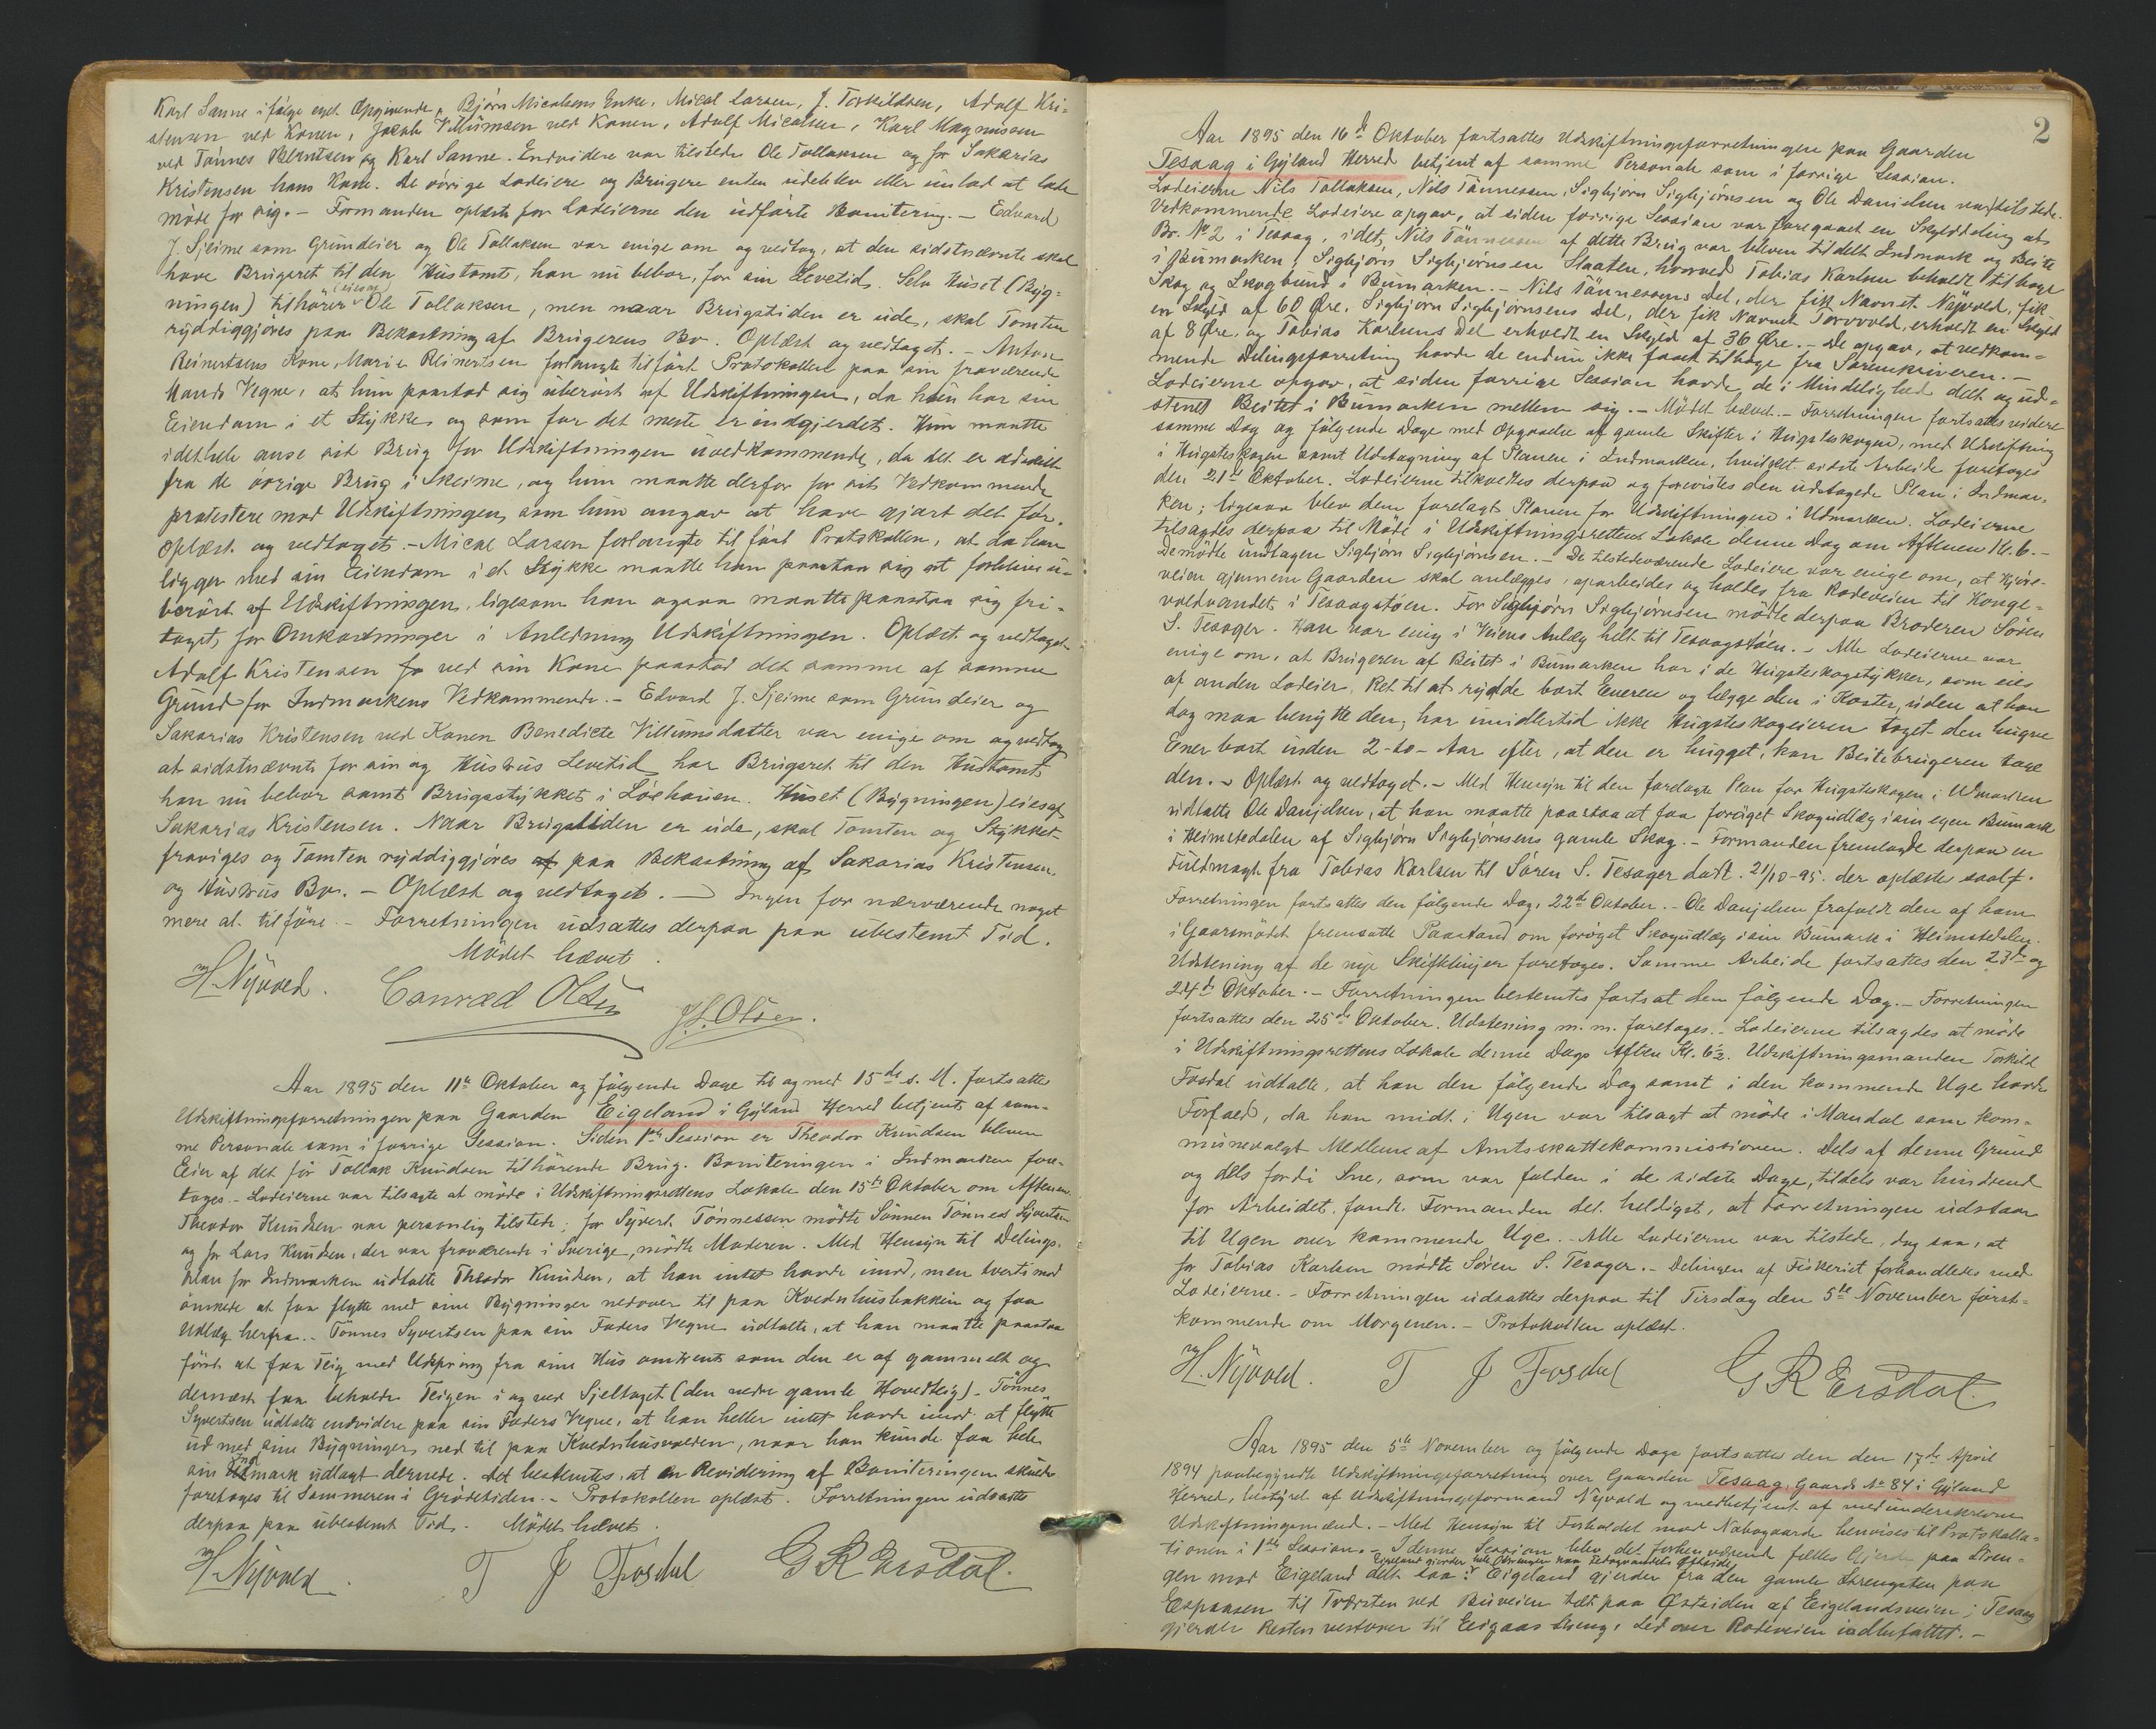 Karl Sanne ifølge eget Opgivende, Bjørn Micalsens Enke, Mical Larsen, J. Torkildsen, Adolf Kri-
stensen ved Konen, Jacob Villumsen ved Konen, Adolf Micalsen, Karl Magnussen
ved Tønnes Berntsen og Karl Sanne. Endvidere var tilstede Ole Tollaksen og for Sakarias
Kristensen hans Kone. De øvrige Lodeiere og Brugere enten udeblev eller undlod at lade
møde for sig. – Formanden oplæste for Lodeierne den udførte Bonitering. – Edvard
J. Sjeime som Grundeier og Ole Tollaksen var enige om og vedtog, at den sidstnævnte skal
have Brugsret til den Hustomt, han nu bebor, for sin Levetid. Selv Huset (Byg-
ningen) tilhører (eies af) Ole Tollaksen, men naar Brugstiden er ude, skal Tomten
ryddiggjøres paa Bekostning af Brugerens Bo. Oplæst og vedtaget. – Anton
Reinertsens Kone, Marie Reinertsen forlangte tilført Protokollen paa sin fraværende
Mands Vegne, at hun paastod sig uberørt af Udskiftningen, da hun har sin
Eiendom i et Stykke og som for det meste er indgjerdet. Hun maatte
idethele anse sit Brug for Udskiftningen uvedkommende, da det er adskilt
fra de øvrige Brug i Skeime, og hun maatte derfor for sit Vedkommende
protestere mod Udskiftningen, som hun angav at have gjort det før.
Oplæst og vedtaget. – Mical Larsen forlangte tilført Protokollen, at da han
ligger med sin Eiendom i et Stykke maatte han paastaa sig at forblive u-
berørt af Udskiftningen, ligesom han ogsaa maatte paastaa sig fri-
taget for Omkostninger i Anledning Udskiftningen. Oplæst og vedtaget.
Adolf Kristensen ved sin Kone paastod det samme af samme
Grund for Indmarkens Vedkommende. – Edvard J. Sjeime som Grundeier og
Sakarias Kristensen ved Konen Benedicte Villumsdatter var enige om og vedtog
at sidstnævnte for sin og Hustrus Levetid har Brugsret til den Hustomt
han nu bebor samt Brugsstykket i Löehauen. Huset (Bygningen) eies af
Sakarias Kristensen. Naar Brugstiden er ude, skal Tomten og Stykket
fraviges og Tomten ryddiggjøres af paa Bekostning af Sakarias Kristensen
og Hustrus Bo. – Oplæst og vedtaget. – Ingen for nærværende noget
mere at tilføre. – Forretningen udsattes derpaa paa ubestemt Tid.
Mødet hævet.
H. Nyvold. Conrad Olsen J. L. Olsen.
Aar 1895 den 11te Oktober og følgende Dage til og med 15de s. M. fortsattes
Udskiftningsforretningen paa Gaarden Eigeland i Gyland Herred betjent af sam-
me Personale som i forrige Session. Siden 1ste Session er Theodor Knudsen bleven
Eier af det før Tollak Knudsen tilhørende Brug. Boniteringen i Indmarken fore-
toges. – Lodeierne var tilsagte at møde i Udskiftningsrettens Lokale den 15de Oktober om Aftenen.
Theodor Knudsen var personlig tilstede; for Syvert Tønnessen mødte Sønnen Tønnes Syvertsen
og for Lars Knudsen, der var fraværende i Sverige, mødte Moderen. Med Hensyn til Delings-
plan for Indmarken udtalte Theodor Knudsen, at han intet havde imod, men tvertimod
ønskede at faa flytte med sine Bygninger nedover til paa Kvednhusbakken og faa
Udlæg herfra. – Tønnes Syvertsen paa sin Faders Vegne udtalte, at han maatte paastaa
først at faa Teig med Udspring fra sine Hus omtrent som den er af gammelt og
dernæst faa beholde Teigen i og ved Sjeltaget (den nedre gamle Hovedteig). – Tønnes
Syvertsen udtalte endvidere paa sin Faders Vegne, at han heller intet havde imod at flytte
ud med sine Bygninger ned til paa Kvednhusvolden, naar han kunde faa hele
sin Indmark udlagt dernede. Det bestemtes, at en Revidering af Boniteringen skulde
foretages til Sommeren i Grødetiden. – Protokollen oplæst. Forretningen udsattes
derpaa paa ubestemt Tid. Mødet hævet.
H. Nyvold. T J Fosdal G R Ersdal.
2
Aar 1895 den 16de Oktober fortsattes Udskiftningsforretningen paa Gaarden
Tesaag i Gyland Herred betjent af samme Personale som i forrige Session.
Lodeierne Nils Tollaksen, Nils Tønnessen, Sigbjørn Sigbjørnsen og Ole Danielsen var tilstede.
Vedkommende Lodeiere opgav, at siden forrige Session var foregaaet en Skylddeling af
Br. No 2 i Tesaag, idet Nils Tønnessen af dette Brug var bleven tildelt Indmark og Beite
i Bumarken, Sigbjørn Sigbjørnsen Slaaten, hvorved Tobias Karlsen beholdt tilbage
Skog og Skogbund i Bumarken. – Nils Tønnessens Del, der fik Navnet Nyvold, fik
en Skyld af 60 Øre, Sigbjørn Sigbjørnsens Del, der fik Navnet Torvvold, erholdt en Skyld
af 8 Øre, og Tobias Karlsens Del erholdt en Skyld af 36 Øre. – De opgav, at vedkom-
mende Delingsforretning havde de endnu ikke faaet tilbage fra Sorenskriveren. –
Lodeierne opgav, at siden forrige Session havde de i Mindelighed delt og ud-
stenet Beitet i Bumarken mellem sig. – Mødet hævet. – Forretningen fortsattes videre
samme Dag og følgende Dage med Opgaaelse af gamle Skifter i Hugsteskogen, med Udskiftning
i Hugsteskogen samt Udstagning af Planen i Indmarken, hvilket sidste Arbeide foretoges
den 21de Oktober. Lodeierne tilkaldtes derpaa og forevistes den udstagede Plan i Indmar-
ken; ligesaa blev dem forelagt Planen for Udskiftningen i Udmarken. Lodeierne
tilsagdes derpaa til Møde i Udskiftningsrettens Lokale denne Dag om Aftenen Kl. 6. –
De mødte undtagen Sigbjørn Sigbjørnsen. – De tilstedeværende Lodeiere var enige om, at Kjøre-
veien gjennem Gaarden skal anlægges, oparbeides og holdes fra Rodeveien til Konge-
voldvandet i Tesaagstøen. For Sigbjørn Sigbjørnsen mødte derpaa Broderen Søren
S. Tesager. Han var enig i Veiens Anlæg helt til Tesaagstøen. – Alle Lodeierne var
enige om, at Brugeren af Beitet i Bumarken har i de Hugsteskogstykker, som eies
af anden Lodeier, Ret til at rydde bort Eneren og lægge den i Koster, uden at han
dog maa benytte den; har imidlertid ikke Hugsteskogeieren taget den hugne
Ener bort inden 2 – to – Aar efter, at den er hugget, kan Beitebrugeren tage
den. – Oplæst og vedtaget. – Med Hensyn til den forelagte Plan for Hugsteskogen i Udmarken
udtalte Ole Danjelsen, at han maatte paastaa at faa forøget Skogudlæg i sin egen Bumark
i Heimstedalen af Sigbjørn Sigbjørnsens gamle Skog. – Formanden fremlagde derpaa en
Fuldmagt fra Tobias Karlsen til Søren S. Tesager dat. 21/10-95. der oplæstes saal.
Forretningen fortsattes den følgende Dag, 22de Oktober. – Ole Danjelsen frafaldt den af ham
i Gaarsmødet fremsatte Paastand om forøget Skogudlæg i sin Bumark i Heimstedalen.
Udstening af de nye Skiftelinjer foretoges. Samme Arbeide fortsattes den 23de og
24de Oktober. – Forretningen bestemtes fortsat den følgende Dag. – Forretningen
fortsattes den 25de Oktober. Udstening m. m. foretoges. – Lodeierne tilsagdes at møde
i Udskiftningsrettens Lokale denne Dags Aften Kl. 6½. Udskiftningsmanden Torkild
Fosdal udtalte, at han den følgende Dag samt i den kommende Uge havde
Forfald, da han midt i Ugen var tilsagt at møde i Mandal som kom-
munevalgt Medlem af Amtsskattekommissionen. Dels af denne Grund
og dels fordi Sne, som var falden i de sidste Dage, tildels var hindrende
for Arbeidet, fandt Formanden det heldigst, at Forretningen udstaar
til Ugen over kommende Uge. – Alle Lodeierne var tilstede, dog saa, at
for Tobias Karlsen mødte Søren S. Tesager. – Delingen af Fiskeriet forhandledes med
Lodeierne. – Forretningen udsattes derpaa til Tirsdag den 5te November først-
kommende om Morgenen. – Protokollen oplæst.
H. Nyvold. T J Fosdal G R Ersdal.
Aar 1895 den 5te November og følgende Dage fortsattes den den 17de April
1894 paabegyndte Udskiftningsforretning over Gaarden Tesaag, Gaards No 84 i Gyland
Herred, bestyret af Udskiftningsformand Nyvold og medbetjent af medunderskrevne
Udskiftningsmænd. – Med Hensyn til Forholdet mod Nabogaarde henvises til Protokolla-
tionen i 1ste Session. – I denne Session blev det forhenværende fælles Gjerde paa Stren-
gen mod Eigeland delt saa: Eigeland gjerder hele Strengen paa Tesagvandets Østside; Eigeland gjerder fra den gamle Strengsten paa
Espaasen til Tværsten ved Buveien tæt paa Østsiden af Eigelandsveien; Tesaag
gjerder Resten vestover til Eigaas Streng, Led over Rodeveien indbefattet. –